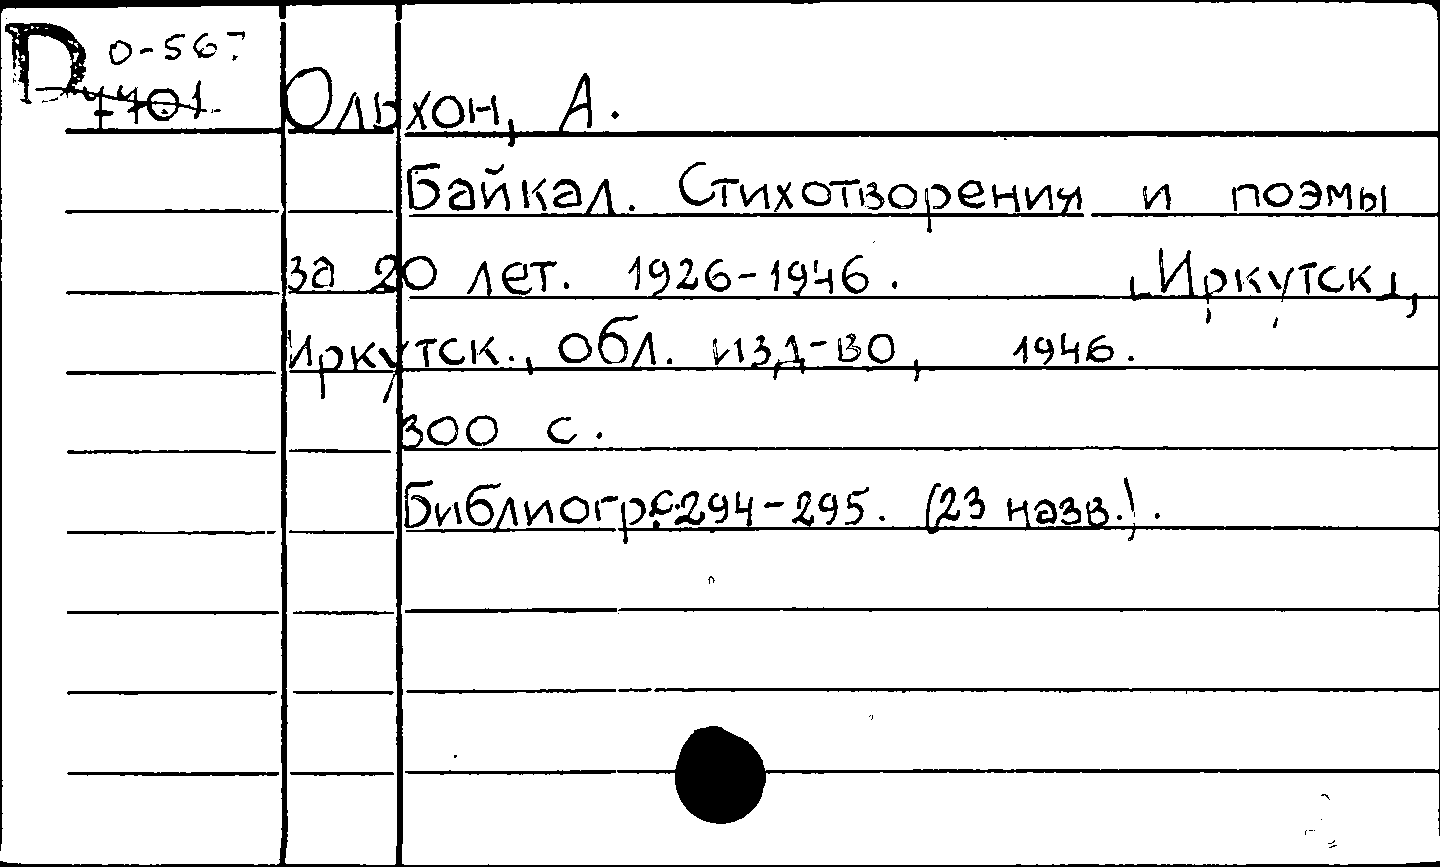 D 0-567
7701
Ольхон, А.
Байкал. Стихотворения и поэмы
за 20 лет. 1926-1946. [Иркутск],
Иркутск., обл. изд-во, 1946.
300 с.
Библиогр:с.294-295. (23 назв.).